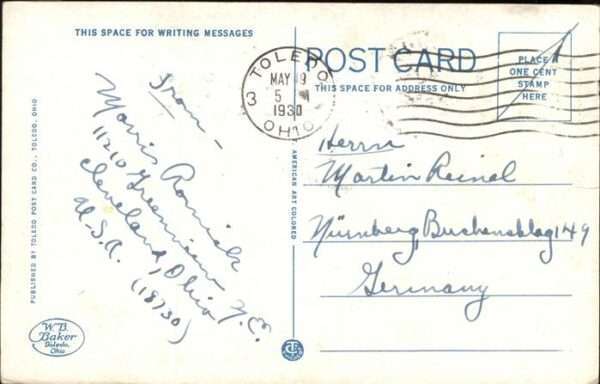 THIS SPACE FOR WRITING MESSAGES
POST CARD
THIS SPACE FOR ADDRESS ONLY
PLACE A
ONE CENT
STAMP
HERE
TOLEDO
MAY 9
5 M
1930
OHIO
3
From -
Morris
11210 Greenview
Cleveland, Ohio
U.S.A.
(18730)
Herrn
Martin Reinel
Nürnberg, 149
Germany
PUBLISHED BY TOLEDO POST CARD CO., TOLEDO, OHIO
AMERICAN ART COLORED
W.B.
Baker
Toledo,
Ohio